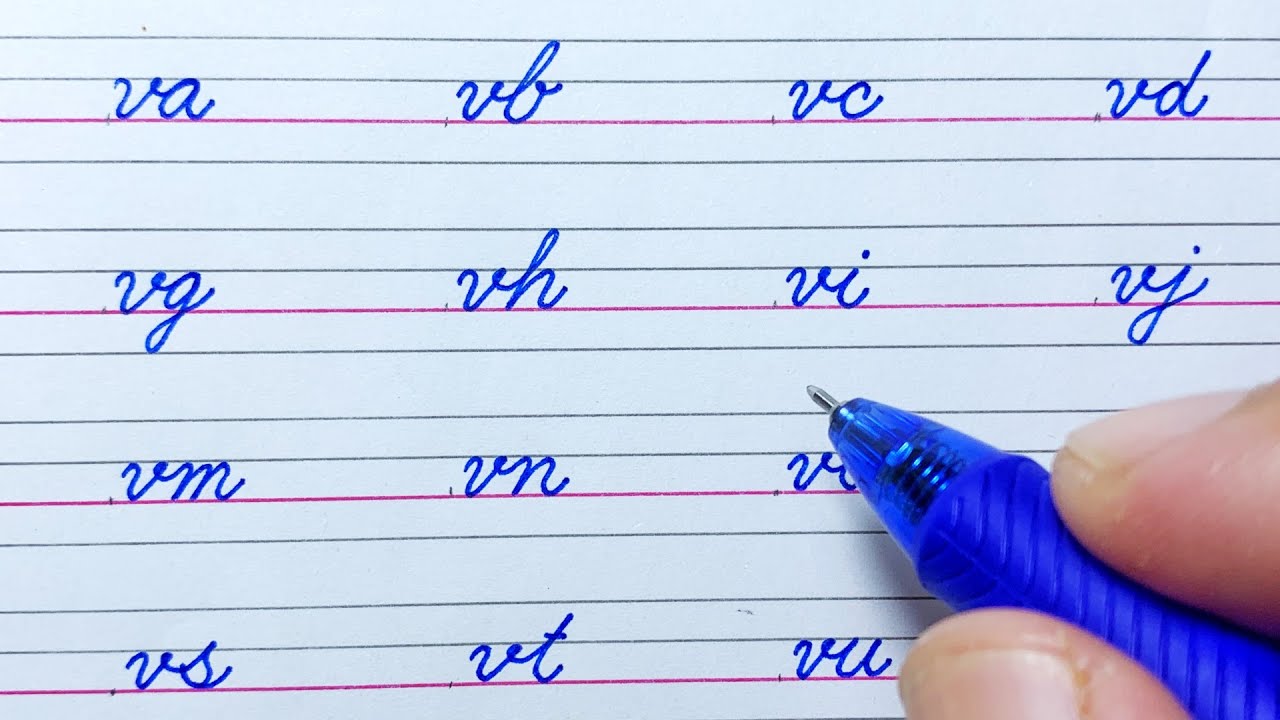 va vb vc vd
vg vh vi vj
vm vn
vs vt vu